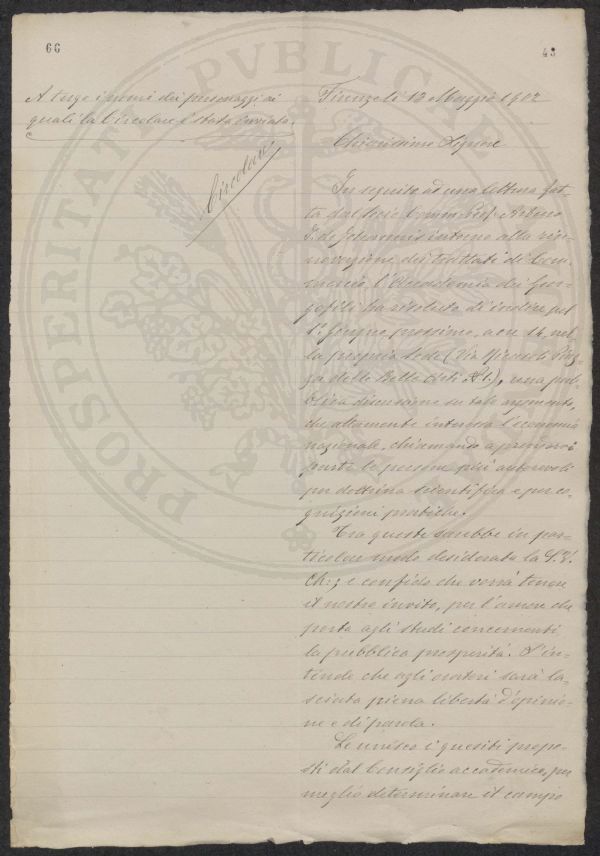 66
43
A tergo i nomi dei personaggi ai
quali la Circolare è stata inviata.
Circolare
Firenze li 12 Maggio 1902
Chiarissimo Signore
In seguito ad una lettura fat-
ta dal Socio Comm. Prof. Arturo
J. de Johannis intorno alla rin-
novazione dei trattati di Com-
mercio, l'Accademia dei Geor-
gofili ha risoluto di indire pel
1° Giugno prossimo, a ore 14, nel-
la propria sede (Via
delle Belle Arti N. 1), una pub-
blica discussione su tale argomento,
che altamente interessa l'economia
nazionale, chiamando a prendervi
parte le persone più autorevoli
per dottrina scientifica e per co-
gnizioni pratiche.
Tra queste sarebbe in par-
ticolar modo desiderata la S. V.
Ch:; e confido che vorrà tenere
il nostro invito, per l'amore che
porta agli studi concernenti
la pubblica prosperità. S'in-
tende che agli oratori sarà la-
sciata piena libertà d'opinio-
ne e di parola.
Le unisco i quesiti propo-
sti dal Consiglio accademico, per
meglio determinare il campo
PROSPERITATI PVBLICAE